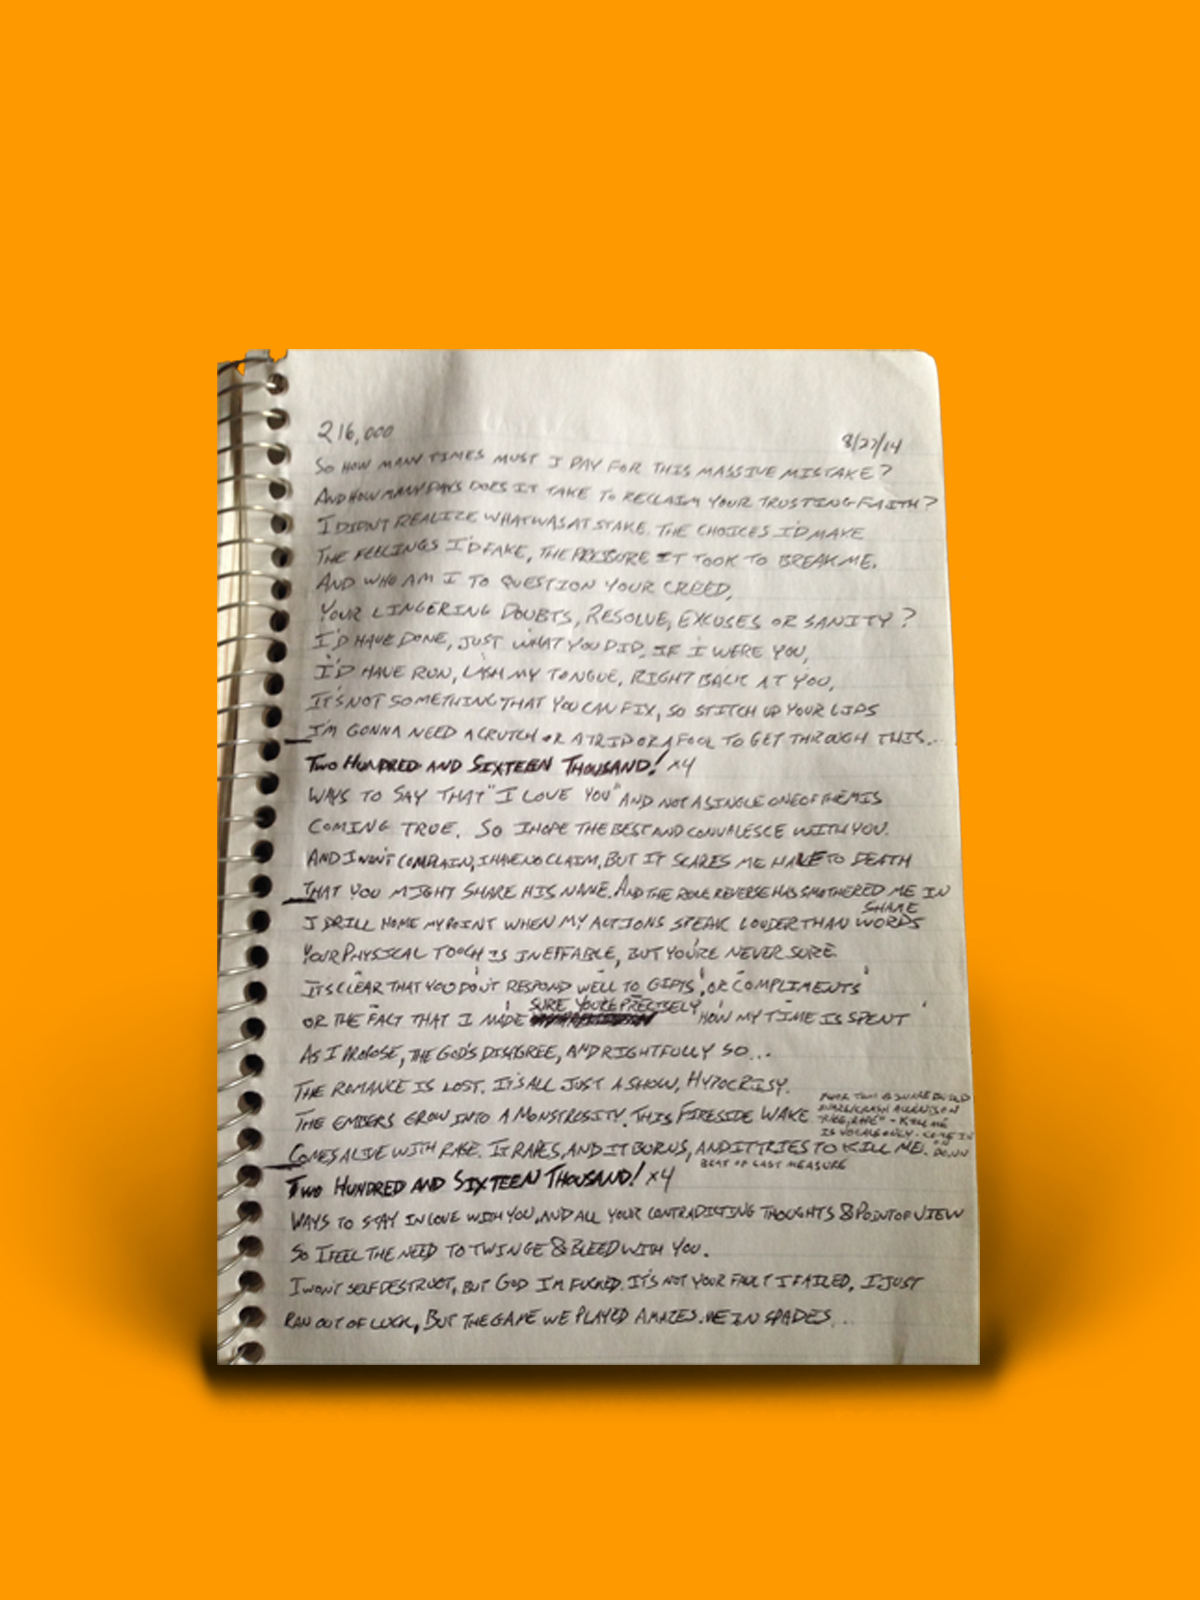 216,000
8/27/14
SO HOW MANY TIMES MUST I PAY FOR THIS MASSIVE MISTAKE?
AND HOW MANY DAYS DOES IT TAKE TO RECLAIM YOUR TRUSTING FAITH?
I DIDN'T REALIZE WHAT WAS AT STAKE. THE CHOICES I'D MAKE
THE FEELINGS I'D FAKE, THE PRESSURE IT TOOK TO BREAK ME.
AND WHO AM I TO QUESTION YOUR CREED,
YOUR LINGERING DOUBTS, RESOLVE, EXCUSES OR SANITY?
I'D HAVE DONE, JUST WHAT YOU DID, IF I WERE YOU,
I'D HAVE RUN, LASH MY TONGUE, RIGHT BACK AT YOU,
IT'S NOT SOMETHING THAT YOU CAN FIX, SO STITCH UP YOUR LIPS
I'M GONNA NEED A CRUTCH OR A TRIP OR A FOOL TO GET THROUGH THIS...
TWO HUNDRED AND SIXTEEN THOUSAND! X4
WAYS TO SAY THAT "I LOVE YOU" AND NOT A SINGLE ONE OF THEM IS
COMING TRUE. SO I HOPE THE BEST AND CONVALESCE WITH YOU.
AND I WON'T COMPLAIN, I HAVE NO CLAIM, BUT IT SCARES ME HALF TO DEATH
THAT YOU MIGHT SHARE HIS NAME. AND THE ROLE REVERSE HAS SMOTHERED ME IN
SHAME
I DRILL HOME MY POINT WHEN MY ACTIONS SPEAK LOUDER THAN WORDS
YOUR PHYSICAL TOUCH IS INEFFABLE, BUT YOU'RE NEVER SURE.
IT'S CLEAR THAT YOU DON'T RESPOND WELL TO GIFTS, OR COMPLIMENTS
SURE YOU'RE PRECISELY
OR THE FACT THAT I MADE HOW MY TIME IS SPENT
AS I PROPOSE, THE GOD'S DISAGREE, AND RIGHTFULLY SO...
THE ROMANCE IS LOST. IT'S ALL JUST A SHOW, HYPOCRISY.
THE EMBERS GROW INTO A MONSTROSITY. THIS FIRESIDE WAKE
KILL ME
IS VOCALS ONLY - COME IN
ON DOWN
COMES ALIVE WITH RAGE. IT RAPES, AND IT BURNS, AND IT TRIES TO KILL ME.
BEAT OF LAST MEASURE
TWO HUNDRED AND SIXTEEN THOUSAND! X4
WAYS TO STAY IN LOVE WITH YOU, AND ALL YOUR CONTRADICTING THOUGHTS & POINT OF VIEW
SO I FEEL THE NEED TO TWINGE & BLEED WITH YOU.
I WON'T SELF DESTRUCT, BUT GOD I'M FUCKED. IT'S NOT YOUR FAULT I FAILED, I JUST
RAN OUT OF LUCK, BUT THE GAME WE PLAYED AMAZES ME IN SPADES...